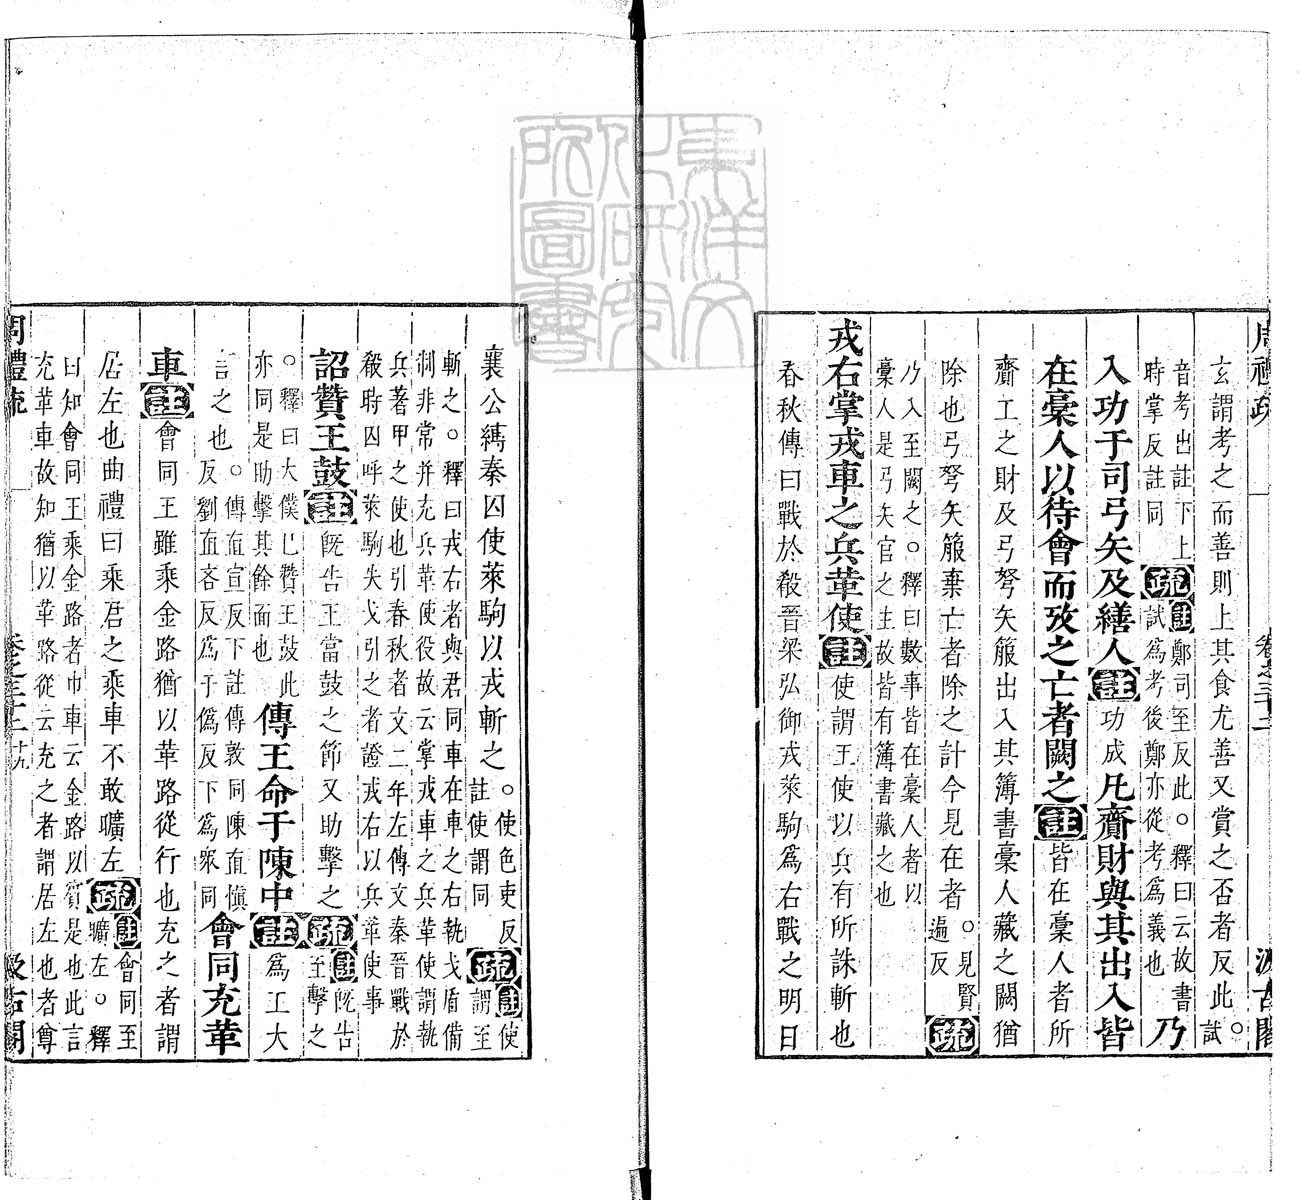 周禮疏
卷之三十二
汲古閣
玄謂考之而善則上其食尤善又賞之否者反此。試
音考出註下上
時掌反註同
疏註鄭司至反此。釋曰云故書
試爲考後鄭亦從考爲義也
乃
入功于司弓矢及繕人註功成凡齎財與其出入皆
在槀人以待會而攷之亡者闕之註皆在槀人者所
齎工之財及弓弩矢箙出入其簿書槀人藏之闕猶
除也弓弩矢箙棄亡者除之計今見在者。見賢
遍反
疏
乃入至闕之。釋曰數事皆在槀人者以
槀人是弓矢官之主故皆有簿書藏之也
戎右掌戎車之兵革使註使謂王使以兵有所誅斬也
春秋傳曰戰於殽晉梁弘御戎萊駒爲右戰之明日
襄公縞秦囚使萊駒以戎斬之。使色吏反
註使謂同
疏註使
謂至
斬之。釋曰戎右者與君同車在車之右執戈盾備
制非常并充兵革使役故云掌戎車之兵革使謂執
兵著甲之使也引春秋者文二年左傳文秦晉戰於
殽時囚呼萊駒失戈引之者證戎右以兵革使事
詔贊王鼓註旣告王當鼓之節又助擊之疏註旣告
至擊之
。釋曰大僕已贊王鼓此
亦同是助擊其餘面也
傳王命于陳中註爲王大
言之也。傳直宣反下註傳敦同陳直愼
反劉直吝反爲于僞反下爲衆同
會同充革
車註會同王雖乘金路猶以革路從行也充之者謂
居左也曲禮曰乘君之乘車不敢曠左疏註會同至
曠左。釋
曰知會同王乘金路者巾車云金路以賓是也此言
充革車故知猶以革路從云充之者謂居左也者尊
周禮疏
卷之三十二
十九
汲古閣